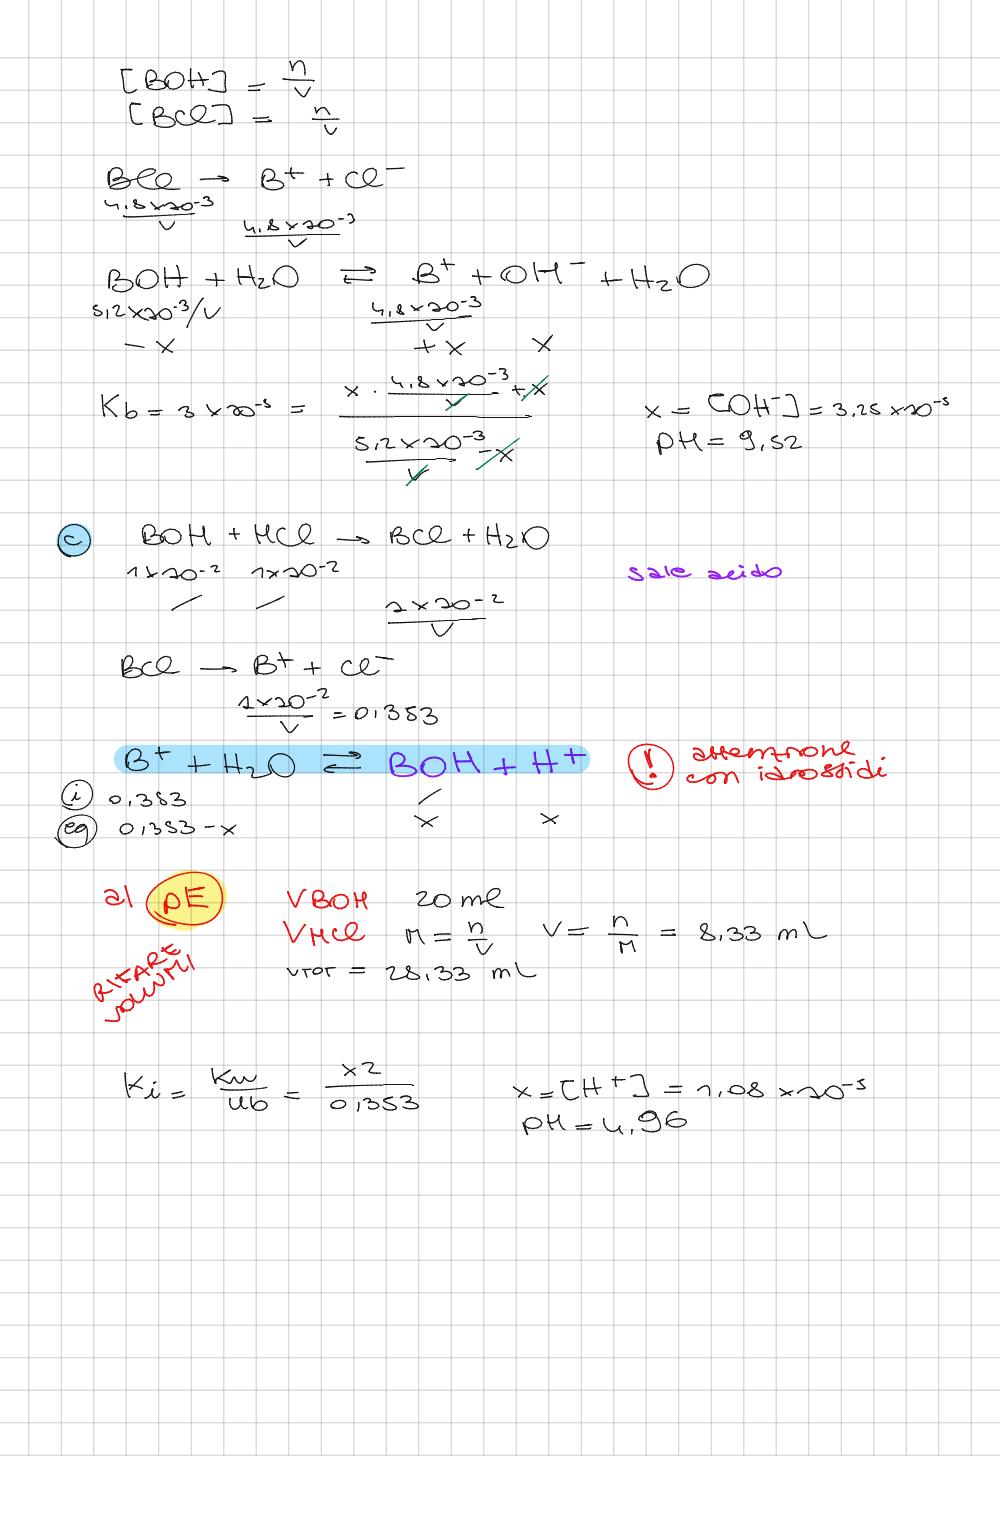 [BOH] = n/V
[BCl] = n/V
BCl → B⁺ + Cl⁻
4,8×10⁻³/V
4,8×10⁻³/V
BOH + H₂O ⇌ B⁺ + OH⁻ + H₂O
5,2×10⁻³/V 4,8×10⁻³/V
- x + x x
Kb = 3×10⁻⁵ = (x · 4,8×10⁻³/V + x) / (5,2×10⁻³/V - x) x = [OH⁻] = 3,25×10⁻⁵
pH = 9,52
c BOH + HCl → BCl + H₂O
1×10⁻² 1×10⁻² sale acido
/ / 1×10⁻²/V
BCl → B⁺ + Cl⁻
1×10⁻²/V = 0,353
B⁺ + H₂O ⇌ BOH + H⁺ ! attenzione con idrossidi
i 0,353 /
eq 0,353 - x x x
al PE VBOH 20 ml
VHCl M = n/V V = n/M = 8,33 mL
VTOT = 28,33 mL
RIFARE VOLUMI
Ki = Kw/Kb = x2/0,353 x = [H⁺] = 1,08×10⁻⁵
pH = 4,96